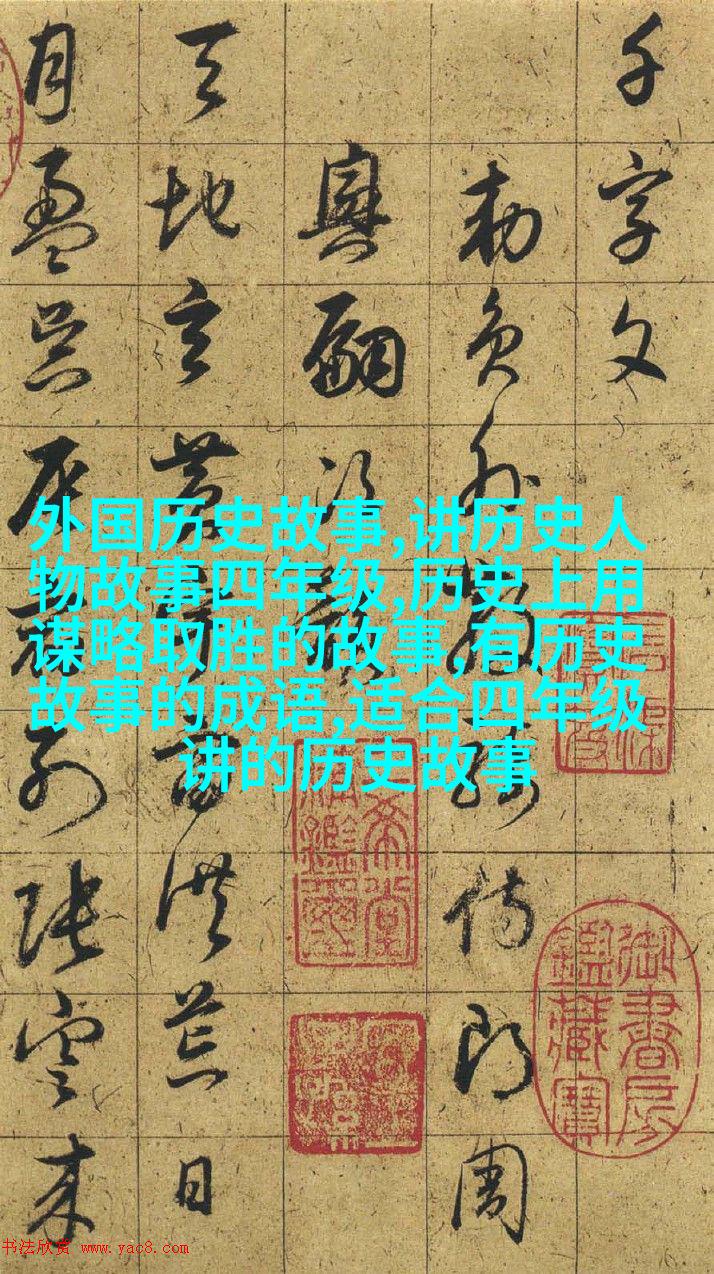 千字文
勅員外散騎侍郎周
興嗣次韻
天地玄黃宇宙洪荒日
月盈昃辰宿列張寒来
外国历史故事,讲历史人
物故事四年级,历史上用
谋略取胜的故事,有历史
故事的成语,适合四年级
讲的历史故事
三希堂精鑑璽
御書房鑑藏寶
书法欣赏 www.yac8.com